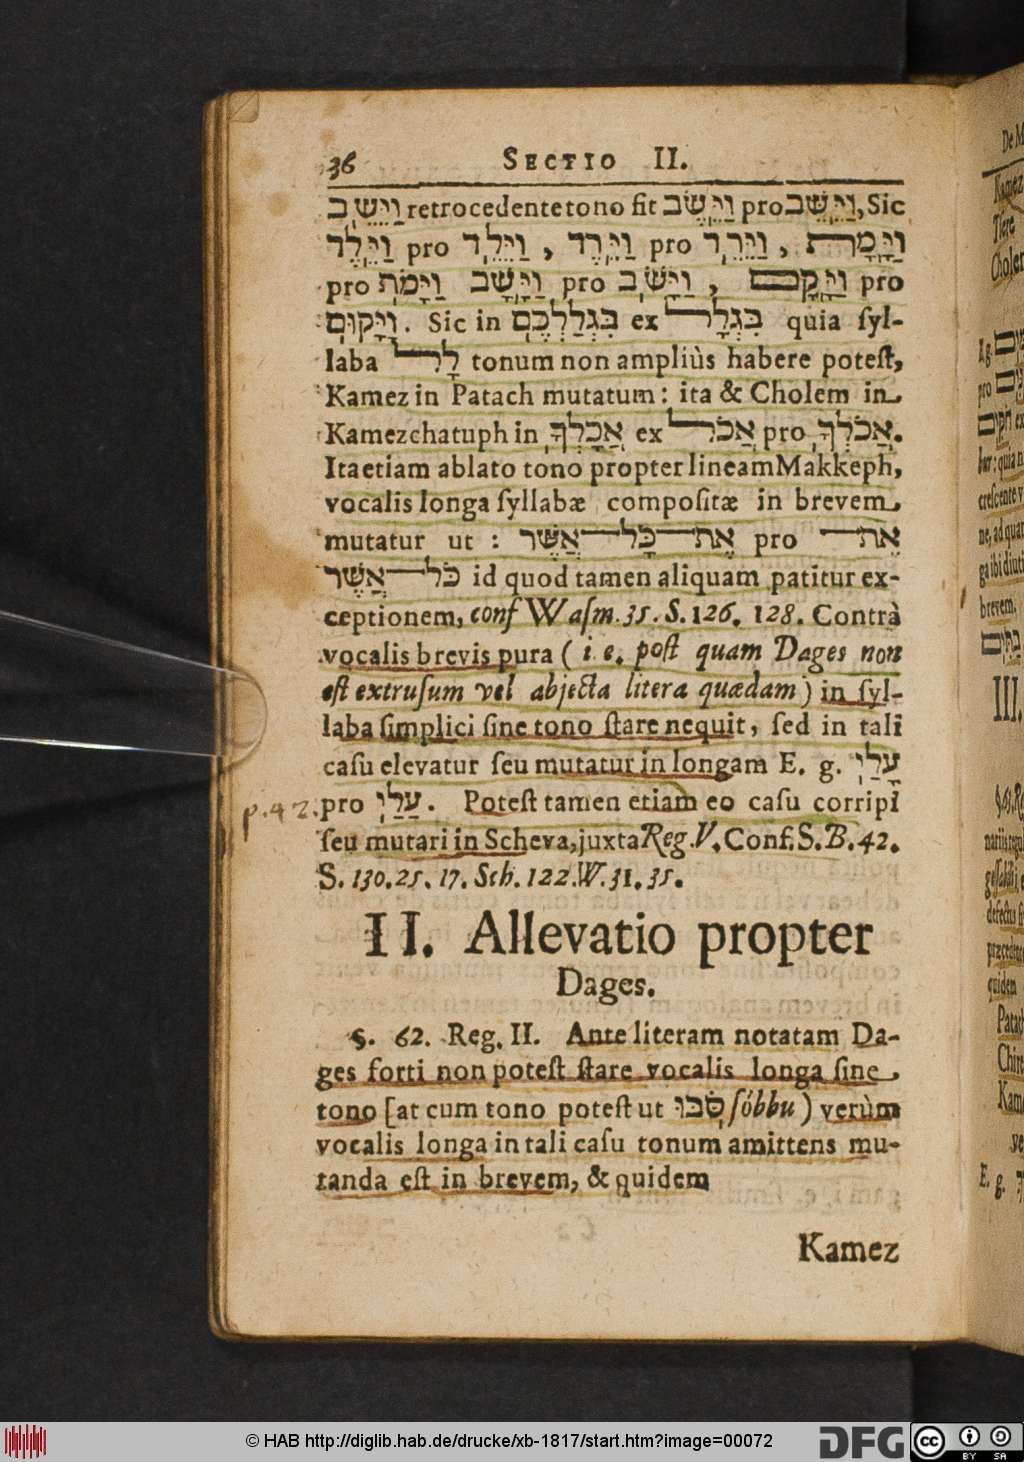 36 SECTIO II.
וַיֵּשֵׁב retrocedente tono fit וַיֵּשֶׁב pro וַיֵּשֵׁב, Sic
וַיֵּלֶד pro וַיֵּלֵד, וַיֵּרֶד pro וַיֵּרֵד, וַיָּמָת
pro וַיָּמֹת וַיָּשָׁב pro וַיָּשֹׁב, וַיָּקָם pro
וַיָּקוּם. Sic in בִּגְלַלְכֶם ex בִּגְלָל quia ſyl-
laba לָל tonum non ampliùs habere poteſt,
Kamez in Patach mutatum: ita & Cholem in
Kamezchatuph in אֲכָלְךָ ex אֲכֹל pro אֲכֹלְךָ.
Ita etiam ablato tono propter lineam Makkeph,
vocalis longa ſyllabæ compoſitæ in brevem
mutatur ut : אֶת־כָּל־אֲשֶׁר pro אֵת־
כֹּל־אֲשֶׁר id quod tamen aliquam patitur ex-
ceptionem, conf Waſm. 35. S. 126. 128. Contrà
vocalis brevis pura ( i e. poſt quam Dages non
eſt extruſum vel abjecta litera quædam) in ſyl-
laba ſimplici ſine tono ſtare nequit, ſed in tali
caſu elevatur ſeu mutatur in longam E. g. עָלַי
p. 42. pro עַלַי. Poteſt tamen etiam eo caſu corripi
ſeu mutari in Scheva, juxta Reg. V. Conf. S. B. 42.
S. 130. 25. 17. Sch. 122. W. 31. 35.
II. Allevatio propter
Dages.
§. 62. Reg. II. Ante literam notatam Da-
ges forti non poteſt ſtare vocalis longa ſine
tono [at cum tono poteſt ut סֹבּוּ ſóbbu ) verùm
vocalis longa in tali caſu tonum amittens mu-
tanda eſt in brevem, & quidem
Kamez
© HAB http://diglib.hab.de/drucke/xb-1817/start.htm?image=00072
DFG
cc BY SA